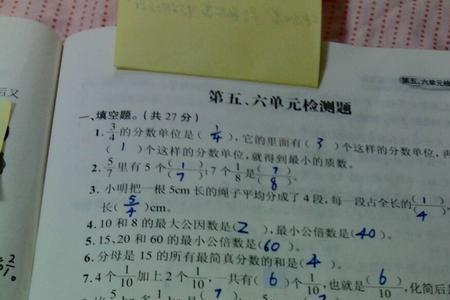 第五、六单元检测题
第五、六单元
一、填空题。(共27分)
1. 3/4的分数单位是( 1/4 ),它的里面有( 3 )个这样的分数单位,再
( 1 )个这样的分数单位,就得到最小的质数。
2. 5/7里有5个(1)/(7);7个1/8是(7)/(8)。
3. 小明把一根5cm长的绳子平均分成了4段,每一段占全长的(1)/(4),
长( 5/4 )cm。
4. 10和8的最大公因数是( 2 ),最小公倍数是( 40 )。
5. 15、20和60的最小公倍数是( 60 )。
6. 分母是15的所有最简真分数的和是( 4 )。
7. 4个1/10加上2个1/10,一共有( 6 )个1/10,也就是(6)/(10),化简后是
后又